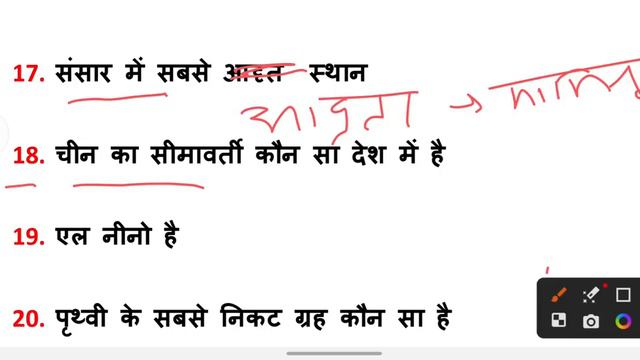 17. संसार में सबसे आद्दत स्थान
आद्रता →
18. चीन का सीमावर्ती कौन सा देश में है
19. एल नीनो है
20. पृथ्वी के सबसे निकट ग्रह कौन सा है